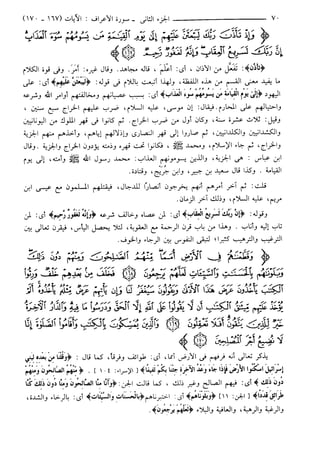 ٧٠ الجزء الثاني - سورة الأعراف: الآيات (١٦٧ - ١٧٠)
وَإِذْ تَأَذَّنَ رَبُّكَ لَيَبْعَثَنَّ عَلَيْهِمْ إِلَىٰ يَوْمِ الْقِيَامَةِ مَن يَسُومُهُمْ سُوءَ الْعَذَابِ إِنَّ رَبَّكَ لَسَرِيعُ الْعِقَابِ وَإِنَّهُ لَغَفُورٌ رَّحِيمٌ
﴿تَأَذَّنَ﴾: تَفَعَّل من الأذان، أي: أعلم، قاله مجاهد. وقال غيره: أمر. وفي قوة الكلام
ما يفيد معنى القسم من هذه اللفظة، ولهذا أتبعت باللام في قوله: ﴿لَيَبْعَثَنَّ عَلَيْهِمْ﴾ أي: على
اليهود ﴿إِلَىٰ يَوْمِ الْقِيَامَةِ مَن يَسُومُهُمْ سُوءَ الْعَذَابِ﴾ أي: بسبب عصيانهم ومخالفتهم أوامر الله وشرعه
واحتيالهم على المحارم. فيقال: إن موسى، عليه السلام، ضرب عليهم الخراج سبع سنين،
وقيل: ثلاث عشرة سنة، وكان أول من ضرب الخراج. ثم كانوا في قهر الملوك من اليونانيين
والكشدانيين والكلدانيين، ثم صاروا إلى قهر النصارى وإذلالهم إياهم، وأخذهم منهم الجزية
والخراج، ثم جاء الإسلام، ومحمد ﷺ، فكانوا تحت قهره وذمته يؤدون الخراج والجزية. قال
ابن عباس: هي الجزية، والذين يسومونهم العذاب: محمد رسول الله ﷺ وأمته، إلى يوم
القيامة. وكذا قال سعيد بن جبير، وابن جُرَيْج، وقتادة.
قلت: ثم آخر أمرهم أنهم يخرجون أنصاراً للدجال، فيقتلهم المسلمون مع عيسى ابن
مريم، عليه السلام، وذلك آخر الزمان.
وقوله: ﴿إِنَّ رَبَّكَ لَسَرِيعُ الْعِقَابِ﴾ أي: لمن عصاه وخالف شرعه ﴿وَإِنَّهُ لَغَفُورٌ رَّحِيمٌ﴾ أي: لمن
تاب إليه وأناب. وهذا من باب قرن الرحمة مع العقوبة، لئلا يحصل اليأس، فيقرن تعالى بين
الترغيب والترهيب كثيراً؛ لتبقى النفوس بين الرجاء والخوف.
وَقَطَّعْنَاهُمْ فِي الْأَرْضِ أُمَمًا مِّنْهُمُ الصَّالِحُونَ وَمِنْهُمْ دُونَ ذَٰلِكَ
وَبَلَوْنَاهُم بِالْحَسَنَاتِ وَالسَّيِّئَاتِ لَعَلَّهُمْ يَرْجِعُونَ فَخَلَفَ مِن بَعْدِهِمْ خَلْفٌ وَرِثُوا
الْكِتَابَ يَأْخُذُونَ عَرَضَ هَٰذَا الْأَدْنَىٰ وَيَقُولُونَ سَيُغْفَرُ لَنَا وَإِن يَأْتِهِمْ عَرَضٌ مِّثْلُهُ يَأْخُذُوهُ أَلَمْ يُؤْخَذْ
عَلَيْهِم مِّيثَاقُ الْكِتَابِ أَن لَّا يَقُولُوا عَلَى اللَّهِ إِلَّا الْحَقَّ وَدَرَسُوا مَا فِيهِ وَالدَّارُ الْآخِرَةُ
خَيْرٌ لِّلَّذِينَ يَتَّقُونَ أَفَلَا تَعْقِلُونَ وَالَّذِينَ يُمَسِّكُونَ بِالْكِتَابِ وَأَقَامُوا الصَّلَاةَ إِنَّا
لَا نُضِيعُ أَجْرَ الْمُصْلِحِينَ
يذكر تعالى أنه فرقهم في الأرض أمماً، أي: طوائف وفرقاً، كما قال: ﴿وَقُلْنَا مِن بَعْدِهِ لِبَنِي
إِسْرَائِيلَ اسْكُنُوا الْأَرْضَ فَإِذَا جَاءَ وَعْدُ الْآخِرَةِ جِئْنَا بِكُمْ لَفِيفًا﴾ [الإسراء: ١٠٤]. ﴿مِّنْهُمُ الصَّالِحُونَ وَمِنْهُمْ
دُونَ ذَٰلِكَ﴾ أي: فيهم الصالح وغير ذلك، كما قالت الجن: ﴿وَأَنَّا مِنَّا الصَّالِحُونَ وَمِنَّا دُونَ ذَٰلِكَ كُنَّا
طَرَائِقَ قِدَدًا﴾ [الجن: ١١] ﴿وَبَلَوْنَاهُم﴾ أي: اختبرناهم ﴿بِالْحَسَنَاتِ وَالسَّيِّئَاتِ﴾ أي: بالرخاء والشدة،
والرغبة والرهبة، والعافية والبلاء ﴿لَعَلَّهُمْ يَرْجِعُونَ﴾.